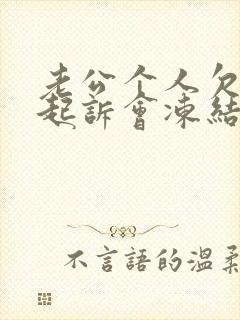 老公个人欠
起訴會凍結
不言語的溫柔